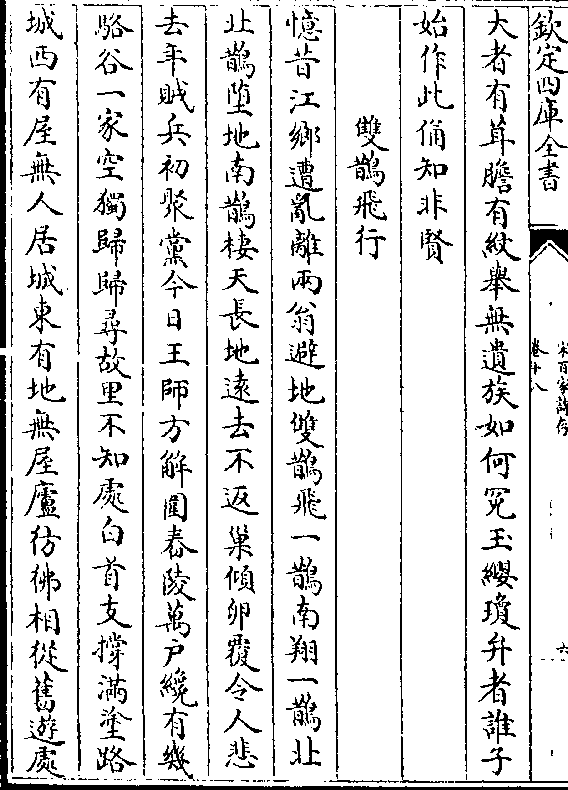 欽定四庫全書
宋百家詩存
卷十八
六
大者有茸膽有紋舉無遺族如何冤玉纓瓊弁者誰子
始作此俑知非賢
雙鵲飛行
憶昔江鄉遭亂離兩翁避地雙鵲飛一鵲南翔一鵲北
北鵲墮地南鵲棲天長地遠去不返巢傾卵覆令人悲
去年賊兵初聚黨今日王師方解圍舂陵萬户纔有幾
駱谷一家空獨歸歸尋故里不知處白首支撐滿塗路
城西有屋無人居城東有地無屋廬彷彿相從舊遊處